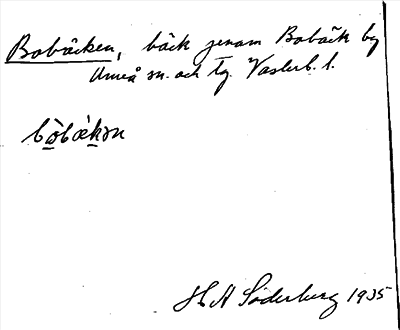 Bobäcken, bäck genom Bobäck by
Umeå sn. och tg. Västerb. l.
bò̲bæ̀k̲ən
H A Söderberg 1935